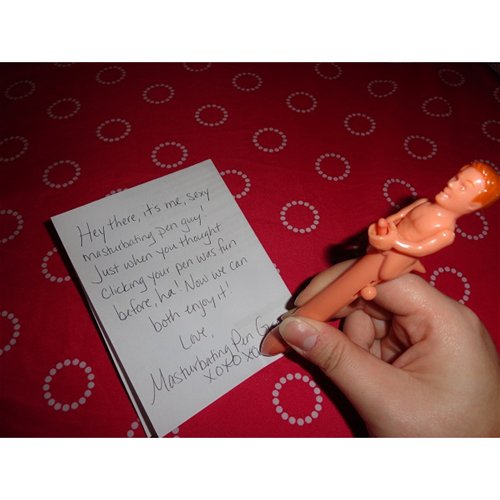 Hey there, it's me, sexy
masturbating pen guy!
Just when you thought
clicking your pen was fun
before, ha! Now we can
both enjoy it!
Love,
Masturbating Pen
XOXOXO